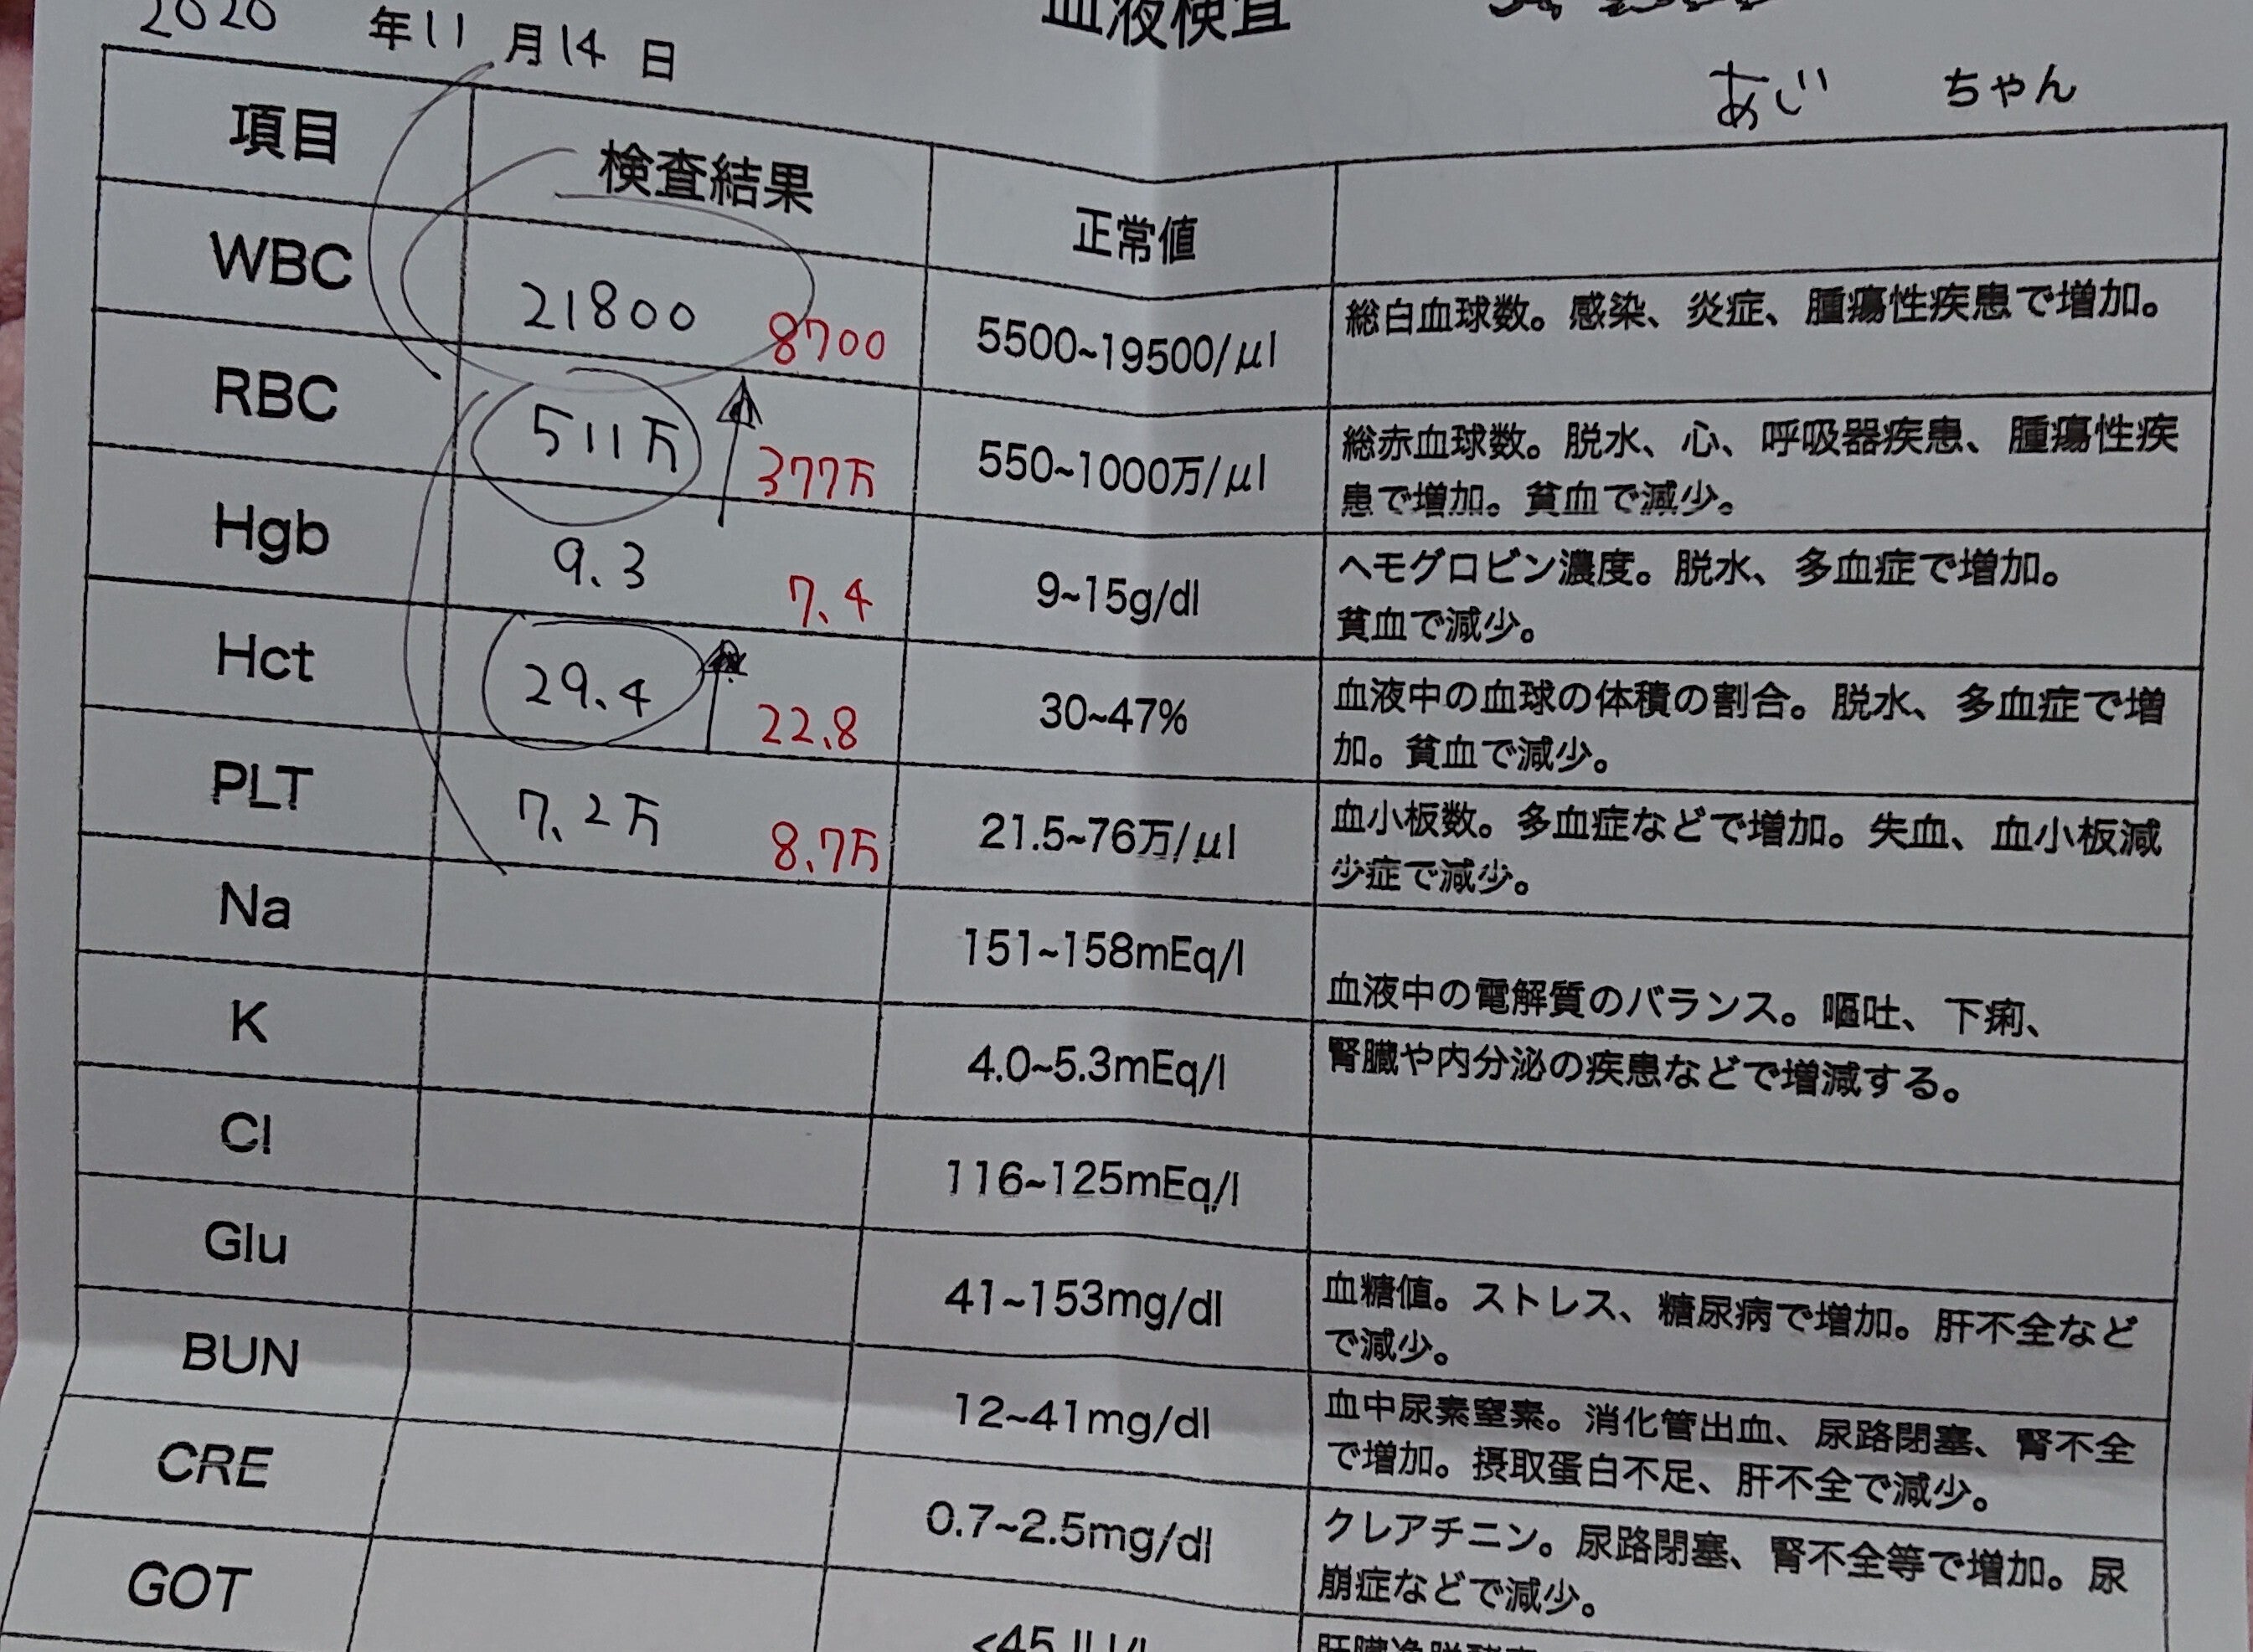 2020 年11月14日
血液検査
あじ ちゃん
項目 検査結果 正常値
WBC 21800 8700 5500~19500/μl 総白血球数。感染、炎症、腫瘍性疾患で増加。
RBC 511万 377万 550~1000万/μl 総赤血球数。脱水、心、呼吸器疾患、腫瘍性疾
患で増加。貧血で減少。
Hgb 9.3 7.4 9~15g/dl ヘモグロビン濃度。脱水、多血症で増加。
貧血で減少。
Hct 29.4 22.8 30~47% 血液中の血球の体積の割合。脱水、多血症で増
加。貧血で減少。
PLT 7.2万 8.7万 21.5~76万/μl 血小板数。多血症などで増加。失血、血小板減
少症で減少。
Na 151~158mEq/l 血液中の電解質のバランス。嘔吐、下痢、
K 4.0~5.3mEq/l 腎臓や内分泌の疾患などで増減する。
Cl 116~125mEq/l
Glu 41~153mg/dl 血糖値。ストレス、糖尿病で増加。肝不全など
で減少。
BUN 12~41mg/dl 血中尿素窒素。消化管出血、尿路閉塞、腎不全
で増加。摂取蛋白不足、肝不全で減少。
CRE 0.7~2.5mg/dl クレアチニン。尿路閉塞、腎不全等で増加。尿
崩症などで減少。
GOT <45